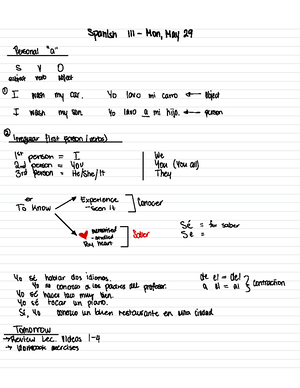 Spanish III - Mon, May 29
Personal "a"
S V O
subject verb object
① I wash my car. Yo lavo mi carro ← object
I wash my son. Yo lavo a mi hijo. ← person
② Irregular first person (verbs)
1st person = I We
2nd person = You You (You all)
3rd person = He/She/It They
To Know
Experience
- Seen it
Conocer
memorized
By heart
Saber
Sé = for saber
Se =
Yo sé hablar dos idiomas.
Yo no conosco a los padres del profesor.
Yo sé hace taco muy bien.
Yo sé tocar un piano.
Si, Yo conosco un buen restaurante en esta ciudad.
de el = del
a el = al
contraction
Tomorrow
→ Review Lec. Videos 1-4
→ Workbook exercises